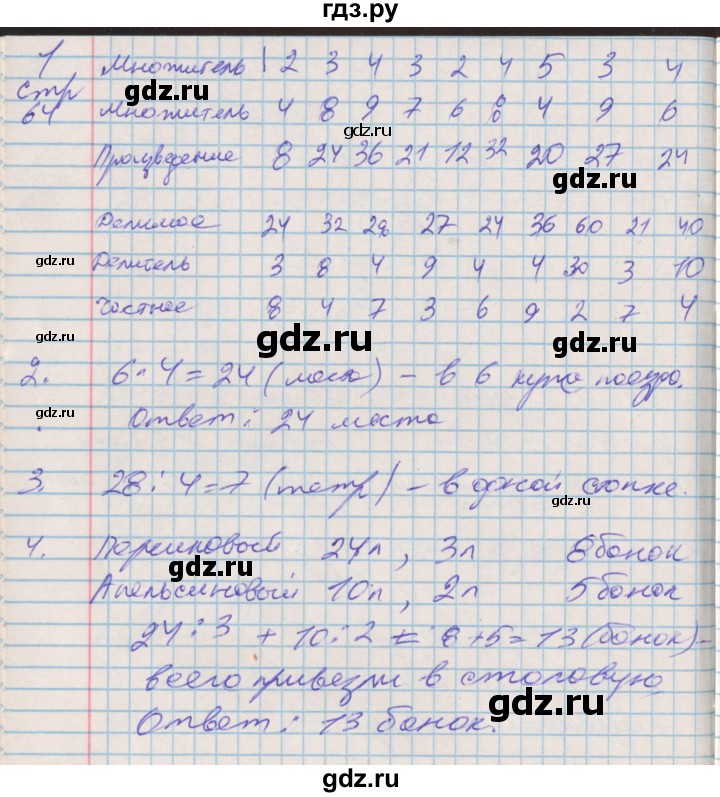 гдз.ру
1 Множитель 2 3 4 3 2 4 5 3 4
стр gdz.ru
64 Множитель 4 8 9 7 6 8 4 9 6
gdz.ru
Произведение 8 24 36 21 12 32 20 27 24
gdz.ru
Делимое 24 32 28 27 24 36 60 21 40
gdz.ru Делитель 3 8 4 9 4 4 30 3 10
Частное 8 4 7 3 6 9 2 7 4
gdz.ru gdz.ru gdz.ru
2. 6 · 4 = 24 (места) – в 6 купе поезда.
Ответ: 24 места
3. 28 : 4 = 7 (тетр) – в одной стопке.
gdz.ru
4. Персиковый 24л, 3л 8 банок
gdz.ru gdz.ru
Апельсиновый 10л, 2л 5 банок
24 : 3 + 10 : 2 = 8 + 5 = 13 (банок) –
gdz.ru
всего привезли в столовую
gdz.ru
Ответ: 13 банок.
gdz.ru
gdz.ru